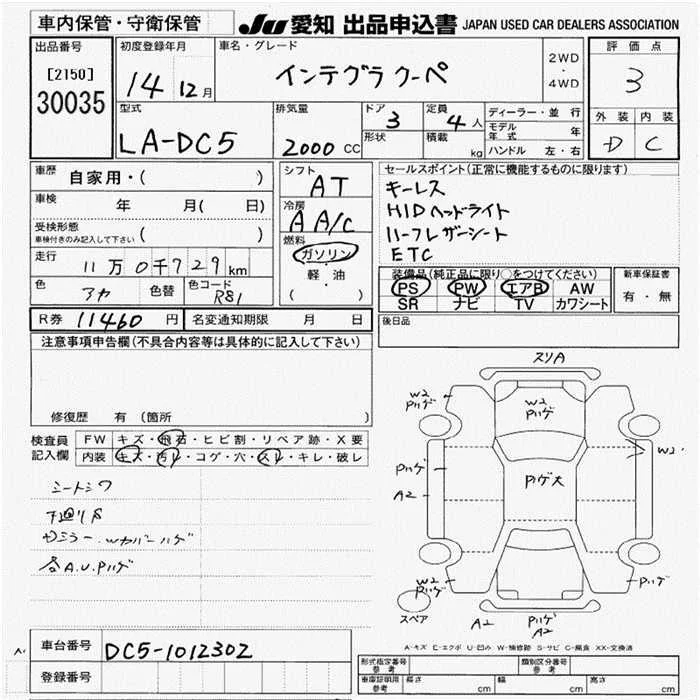 車内保管・守衛保管 JU 愛知 出品申込書 JAPAN USED CAR DEALERS ASSOCIATION
出品番号 初度登録年月 車名・グレード 評価点
[2150] 14 12月 インテグラ クーペ 2WD・4WD 3
30035
型式 排気量 ドア 定員 ディーラー・並行 外装 内装
LA-DC5 2000 CC 3 4人 モデル年式 年 D C
形状 積載 kg ハンドル 左・右
車歴 自家用・( ) シフト AT セールスポイント(正常に機能するものに限ります)
車検 年 月( 日) 冷房 A A/C キーレス
HIDヘッドライト
受検形態 車検付きのみ記入して下さい ( ) 燃料 ガソリン ハーフレザーシート
ETC
走行 11万0千729km 軽・油
色 アカ 色替 色コード R81 ( )
装備品(純正品に限り○をつけてください) 新車保証書
PS PW エアB AW 有・無
SR ナビ TV カワシート
R券 11460円 名変通知期限 月 日 後日品
注意事項申告欄(不具合内容等は具体的に記入して下さい)
修復歴 有(箇所 )
検査員記入欄 FW キズ・飛石・ヒビ割・リペア跡・X要
内装 キズ・汚レ・コゲ・穴・スレ・キレ・破レ
シートシワ
下廻りS
ドミラー.Wカバーハゲ
各A.U.Pハゲ
スリA
W2 Pハゲ
W2 Pハゲ
W2
Pハゲ
Pハゲ大
A2
W2 Pハゲ
Pハゲ
スペア
A2
Pハゲ A2
A-キズ E-エクボ U-凹み W-補修跡 S-サビ C-腐食 XX-交換済
車台番号 DC5-1012302
登録番号
形式指定番号 参考 類別区分番号 参考
車庫証明用 参考 長さ cm 幅 cm 高さ cm